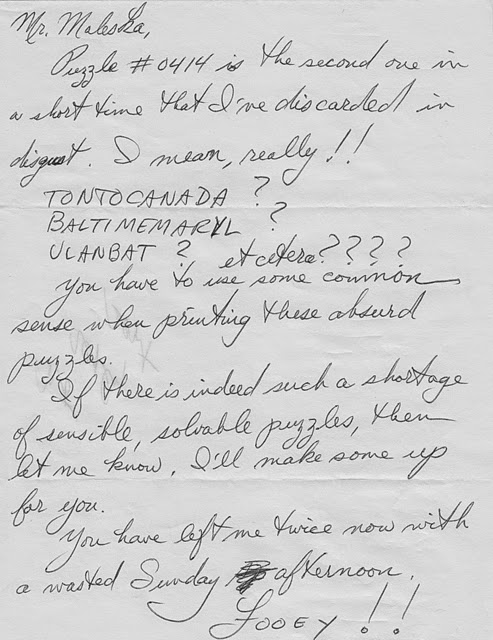 Mr. Maleska,
Puzzle #0414 is the second one in
a short time that I've discarded in
disgust. I mean, really!!
TONTOCANADA ?
BALTIMEMARYL ?
ULANBAT ? et cetera????
You have to use some common
sense when printing these absurd
puzzles.
If there is indeed such a shortage
of sensible, solvable puzzles, then
let me know. I'll make some up
for you.
You have left me twice now with
a wasted Sunday afternoon.
Fooey!!